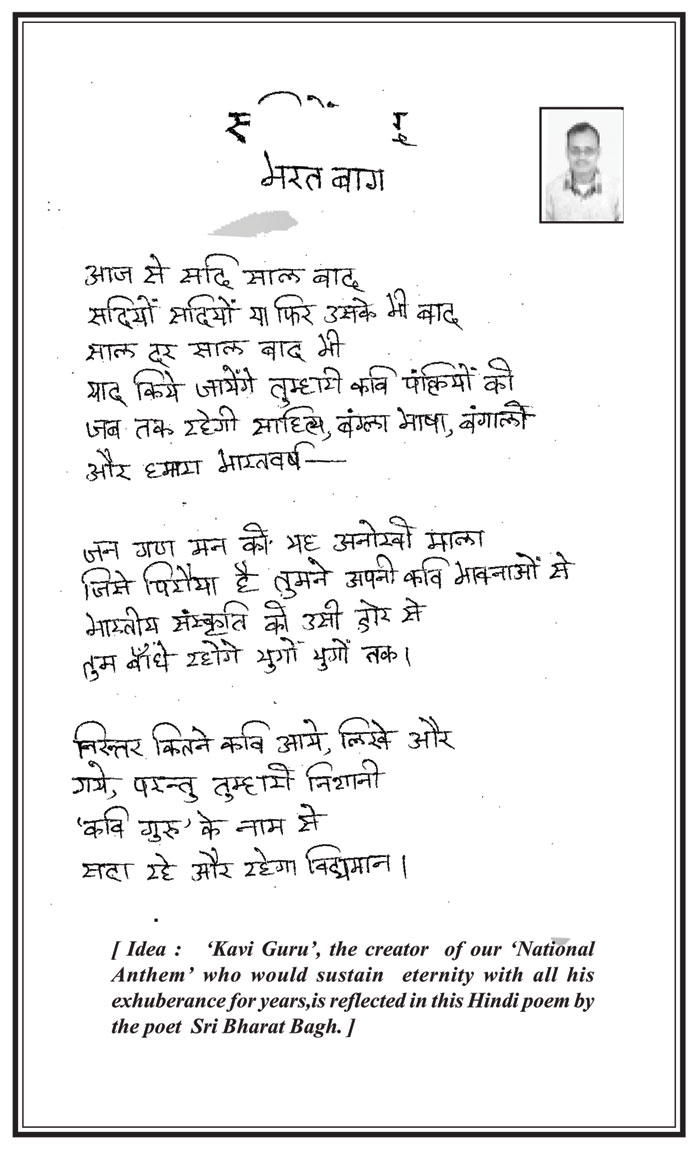 भरत बाग
आज से सदि साल बाद
सदियों सदियों या फिर उसके भी बाद
साल दर साल बाद भी
याद किये जायेंगे तुम्हारी कवि पंक्तियों की
जब तक रहेगी साहित्य, बंगला भाषा, बंगाली
और हमारा भारतवर्ष—
जन गण मन की यह अनोखी माला
जिसे पिरोया है तुमने अपनी कवि भावनाओं से
भारतीय संस्कृति की उसी डोर से
तुम बाँधे रहोगे युगों युगों तक।
निरन्तर कितने कवि आये, लिखे और
गये, परन्तु तुम्हारी निशानी
'कवि गुरु' के नाम से
सदा रहे और रहेगा विद्यमान।
[ Idea : 'Kavi Guru', the creator of our 'National
Anthem' who would sustain eternity with all his
exhuberance for years,is reflected in this Hindi poem by
the poet Sri Bharat Bagh. ]